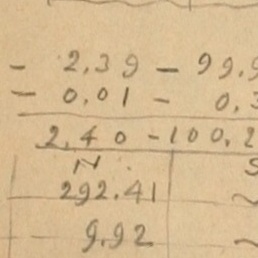 - 2.39 - 99.9
- 0.01 - 0.3
2.40 -100.2
N. S
292.41
9.92